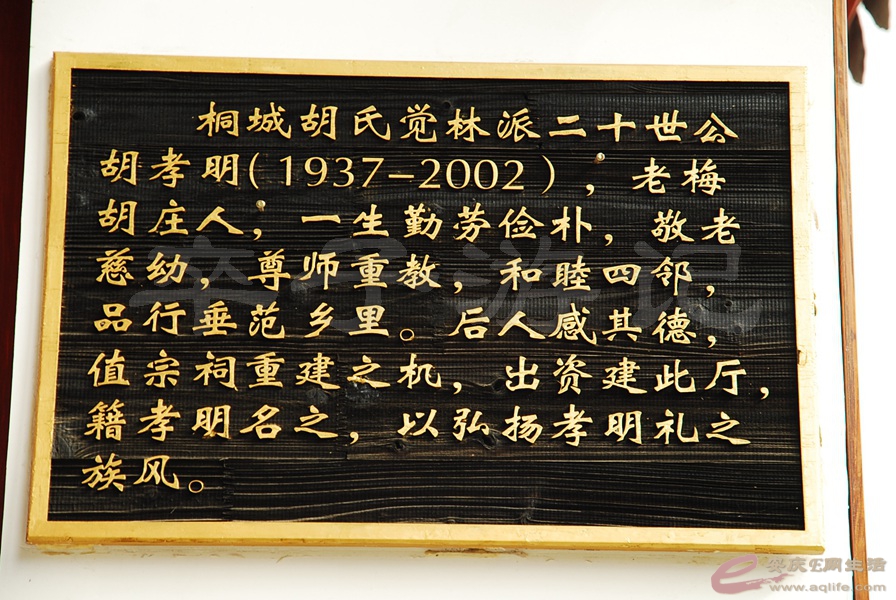 桐城胡氏觉林派二十世公
胡孝明(1937-2002)，老梅
胡庄人，一生勤劳俭朴，敬老
慈幼，尊师重教，和睦四邻，
品行垂范乡里。后人感其德，
值宗祠重建之机，出资建此厅，
籍孝明名之，以弘扬孝明礼之
族风。
www.aqlife.com